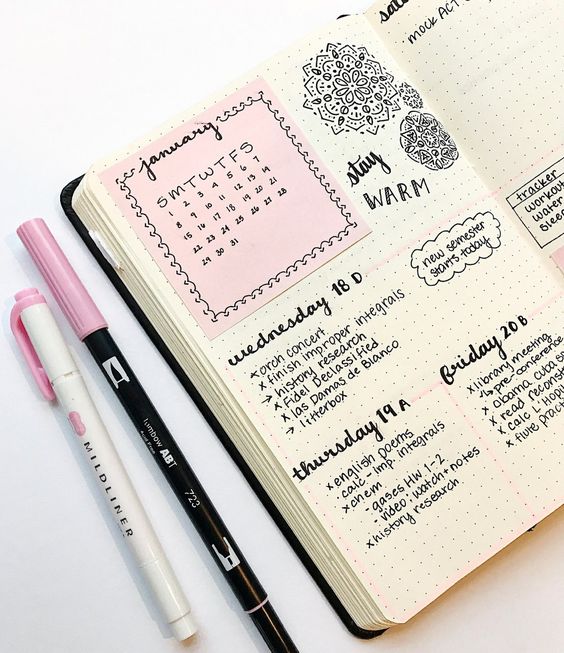 january
S M T W T F S
1 2 3 4 5 6 7
8 9 10 11 12 13 14
15 16 17 18 19 20 21
22 23 24 25 26 27 28
29 30 31
stay
WARM
new semester
starts today
wednesday 18 D
x orch concert
x finish improper integrals
→ history research
x Fidel Declassified
x las Damas de Blanco
→ litterbox
thursday 19 A
x english poems
· calc - imp. integrals
x chem
- gases HW 1-2
- video: watch + notes
x history research
mock ACT
tracker
workou
water
sleep
friday 20 B
x library meeting
↳ pre-conference
x obama cuba s
x read reconst
x calc
MILDLINER
Tombow ABT
723